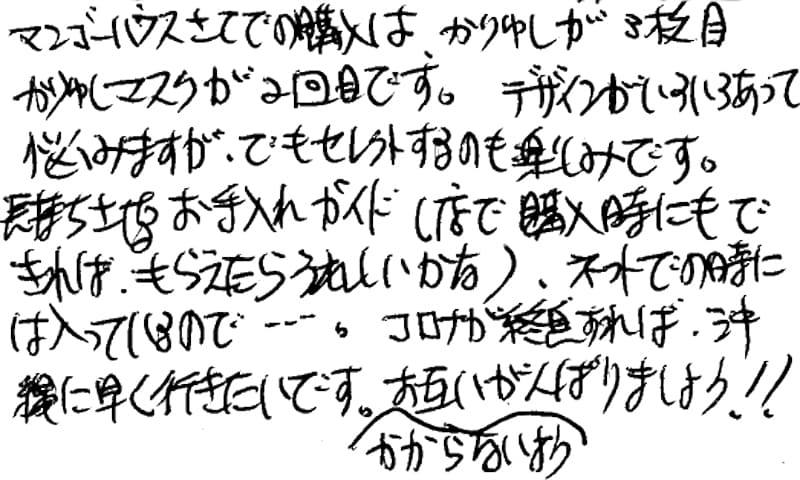 マンゴーハウスさてでの購入は、かりゆしが3枚目
かりゆしマスクが2回目です。 デザインがいろいろあって
悩みますが、でもセレクトするのも楽しみです。
長持ちさせる お手入れ ガイド (店で 購入時にもで
きれば、もらえたらうれしいかな)、ネットでの時に
は入っているので ---。 コロナが終息すれば、沖
縄に早く行きたいです。お互いがんばりましょう!!
かからないよう